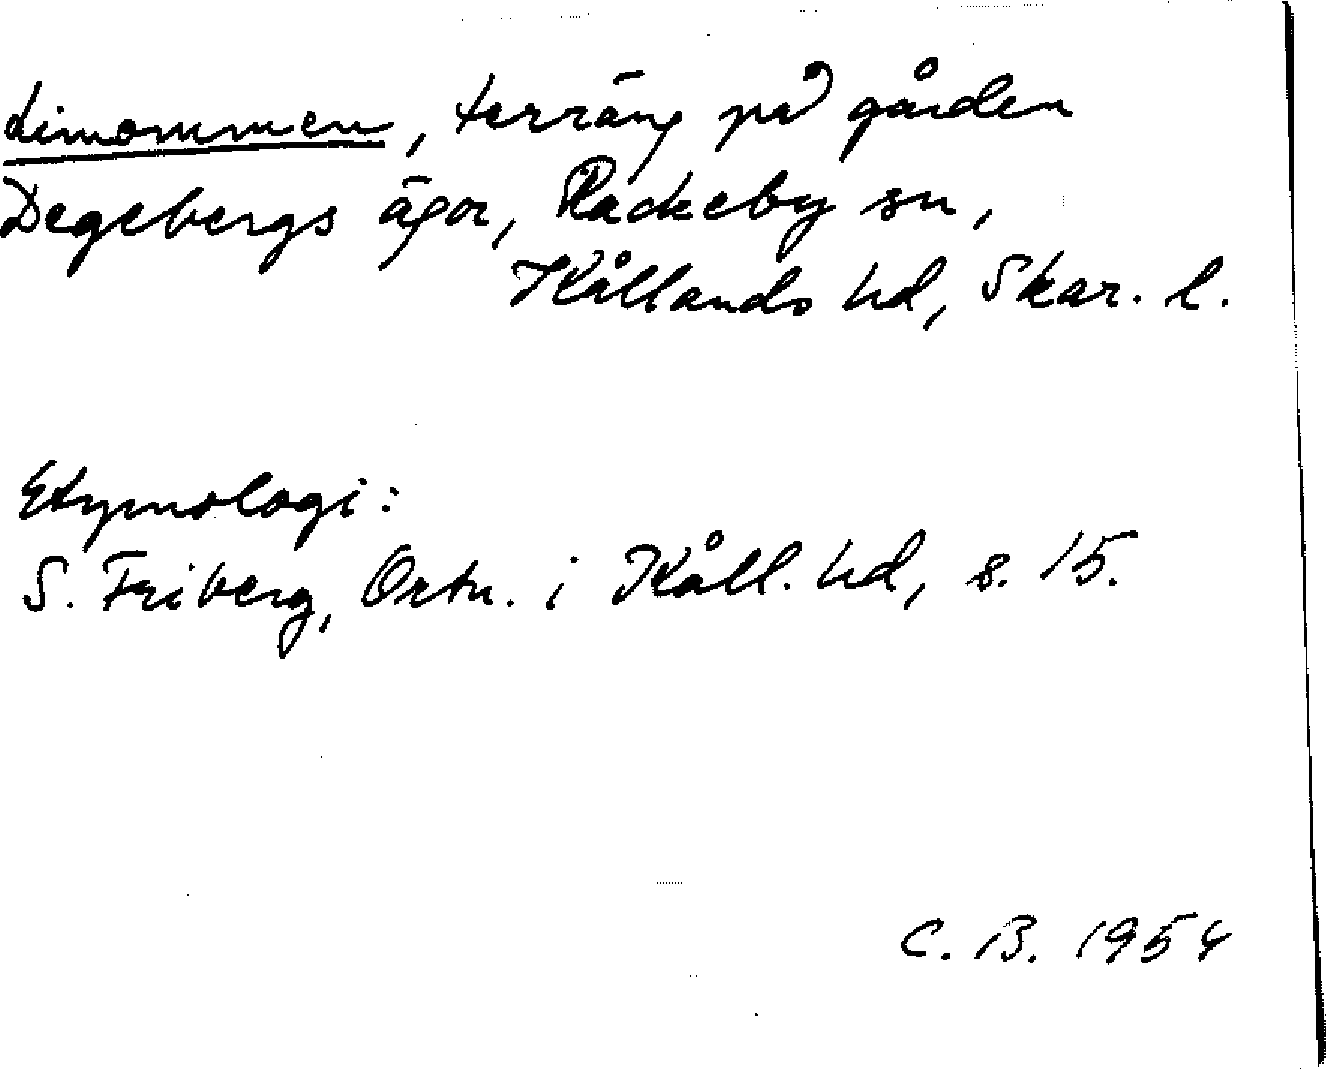 Limommen, terräng på gården
Degebergs ägor, Rackeby sn,
Kållands hd, Skar. l.
Etymologi:
S. Friberg, Ortn. i Kåll. hd, s. 15.
C. B. 1954